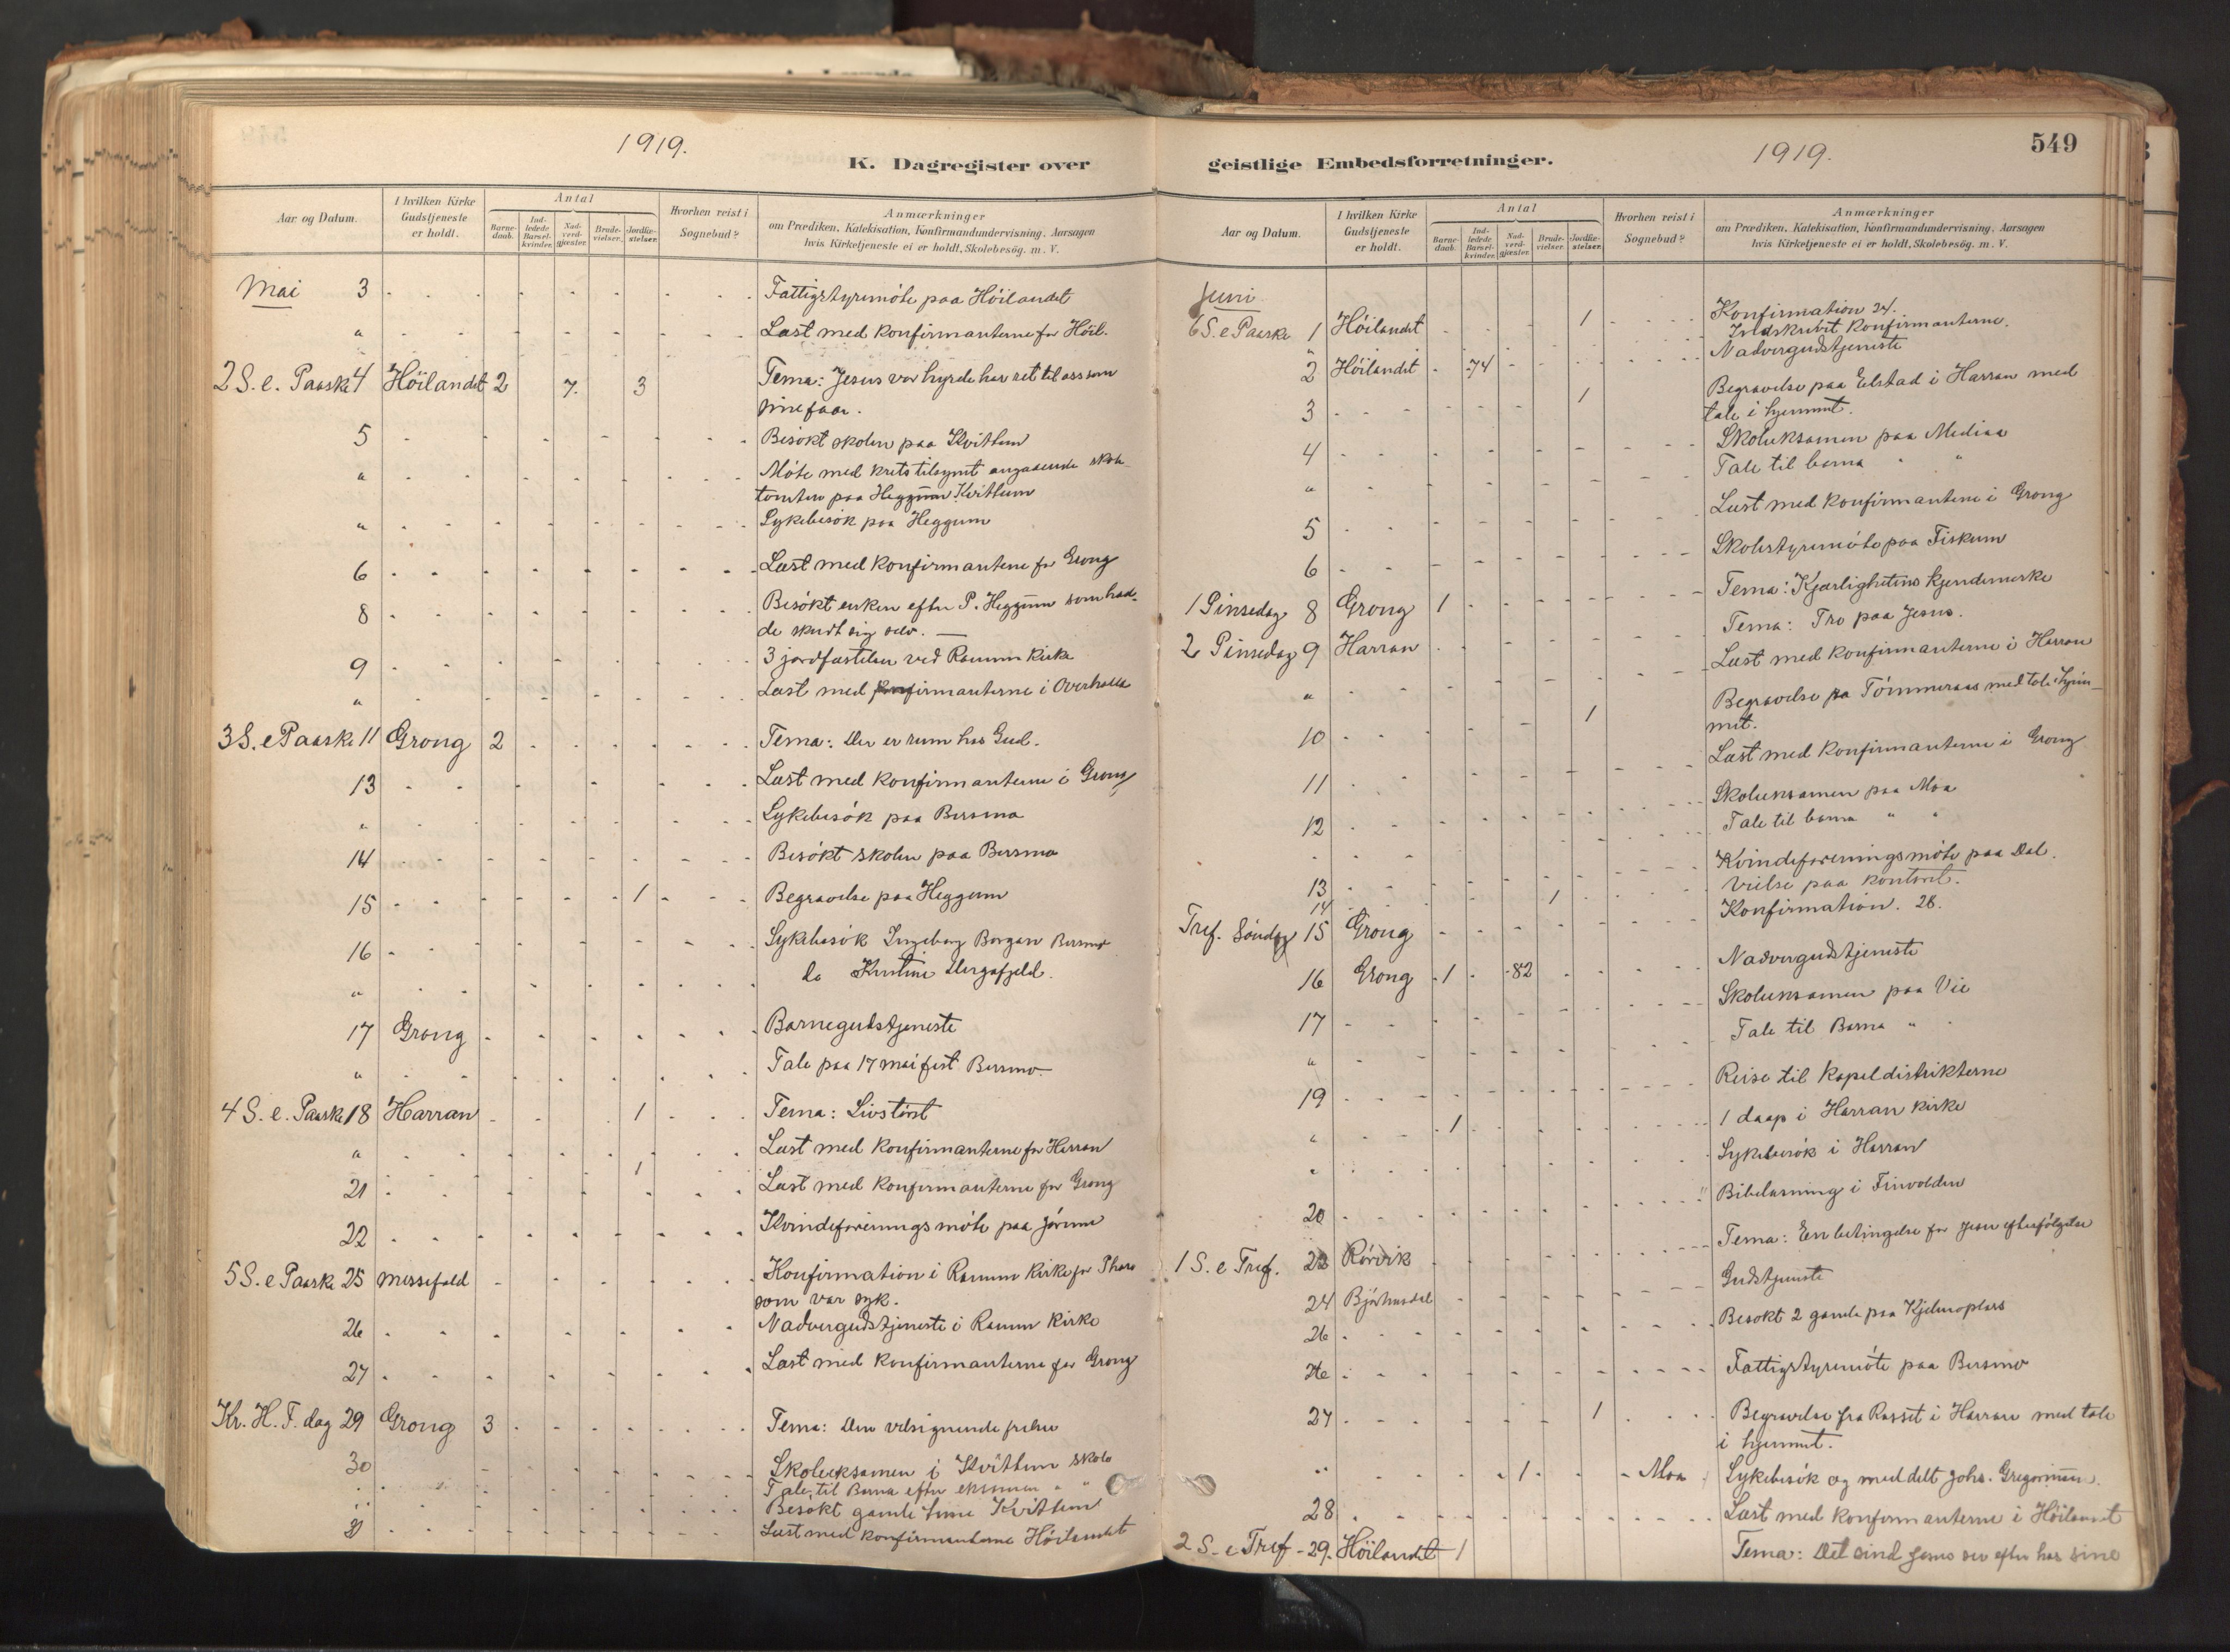 1919.
K. Dagregister over
Aar og Datum.
I hvilken Kirke
Gudstjeneste
er holdt.
Antal
Barne-
daab.
Ind-
ledede
Barsel-
kvinder.
Nad-
verd-
gjæster.
Brude-
vielser.
Jordfæ-
stelser.
Hvorhen reist i
Sognebud?
Anmærkninger
om Prædiken, Katekisation, Konfirmandundervisning, Aarsagen
hvis Kirketjeneste ei er holdt, Skolebesög. m. V.
Mai 3 Fattigstyremöte paa Höilandet
" Læst med konfirmanterne for Höil.
2 S. e. Paask 4 Höilandet 2 7. 3 Tema: Jesus vor hyrde har ret til oss som
sine faar.
5 Besökt skolen paa Kvittum
" Möte med kretstilsynet angaaende skole-
tomten paa Heggum Kvittum
" Sykebesök paa Heggum
6 Læst med konfirmantene for Grong
8 Besökt enken efter P. Heggum som had-
de skudt sig selv. —
9 3 jordfæstelser ved Ranum Kirke
" Læst med konfirmanterne i Overhalla
3 S. e Paaske 11 Grong 2 Tema: Der er rum hos Gud.
13 Læst med konfirmanterne i Grong
" Sykebesök paa Bersmo
14 Besökt skolen paa Bersmo
15 1 Begravelse paa Heggum
16 Sykebesök Ingeborg Borgan Bersmo
" do Kristine
17 Grong Barnegudstjeneste
" Tale paa 17 mai fest Bersmo
4 S. e. Paaske 18 Harran 1 Tema: Livstörst
" 1 Læst med konfirmanterne for Harran
21 Læst med konfirmanterne for Grong
22 Kvindeforeningsmöte paa Jörum
5 S. e Paaske 25 Konfirmation i Ranum Kirke for
som var syk.
26 Nadvergudstjeneste i Ranum Kirke
27 Læst med konfirmanterne for Grong
Kr. H. F. dag 29 Grong 3 Tema: Den velsignende frelser
30 Skoleeksamen i Kvittum skole
" Tale til Barna efter eksamen " "
" Besökt gamle Kvittum
31 Læst med konfirmanterne Höilandet
geistlige Embedsforretninger.
1919.
549
Aar og Datum.
I hvilken Kirke
Gudstjeneste
er holdt.
Antal
Barne-
daab.
Ind-
ledede
Barsel-
kvinder.
Nad-
verd-
gjæster.
Brude-
vielser.
Jordfæ-
stelser.
Hvorhen reist i
Sognebud?
Anmærkninger
om Prædiken, Katekisation, Konfirmandundervisning, Aarsagen
hvis Kirketjeneste ei er holdt, Skolebesög. m. V.
Juni
6 S. e Paaske 1 Höilandet 1 Konfirmation 24.
" Indskrevet konfirmanterne.
2 Höilandet 74 Nadvergudstjeneste
3 1 Begravelse paa Elstad i Harran med
tale i hjemmet.
4 Skoleeksamen paa Mediaa
" Tale til barna " "
5 Læst med konfirmantene i Grong
6 Skolestyremöte paa Fiskum
1 Pinsedag 8 Grong 1 Tema: Kjærlighetens kjendemerke
2 Pinsedag 9 Harran Tema: Tro paa Jesus.
" Læst med konfirmanterne i Harran
10 1 Begravelse paa Tömmeraas med tale i hjem-
met.
11 Læst med konfirmanterne i Grong
12 Skoleeksamen paa Moa
" Tale til barna " "
13 Kvindeforeningsmöte paa Dal.
14 1 Vielse paa kontoret.
Tref. Söndag 15 Grong Konfirmation. 28.
16 Grong 1 82 Nadvergudstjeneste
17 Skoleeksamen paa Vie
" Tale til Barna " "
19 Reise til kapeldistrikterne
" 1 1 daap i Harran kirke
" Sykebesök i Harran
20 Bibellæsning i Finvolden
1 S. e Tref. 22 Rörvik Tema: En betingelse for Jesu efterfölgelse
24 Björhusdal Gudstjeneste
26 Besökt 2 gamle paa Kjelmoplass
26 Fattigstyremöte paa Bersmo
27 1 Begravelse fra Rosset i Harran med tale
i hjemmet.
" 1 Moa Sykebesök og meddelt Johs. Gregersen
28 Læst med konfirmanterne i Höilandet
2 S. e Tref 29. Höilandet 1 Tema: Det sind Jesus ser efter hos sine